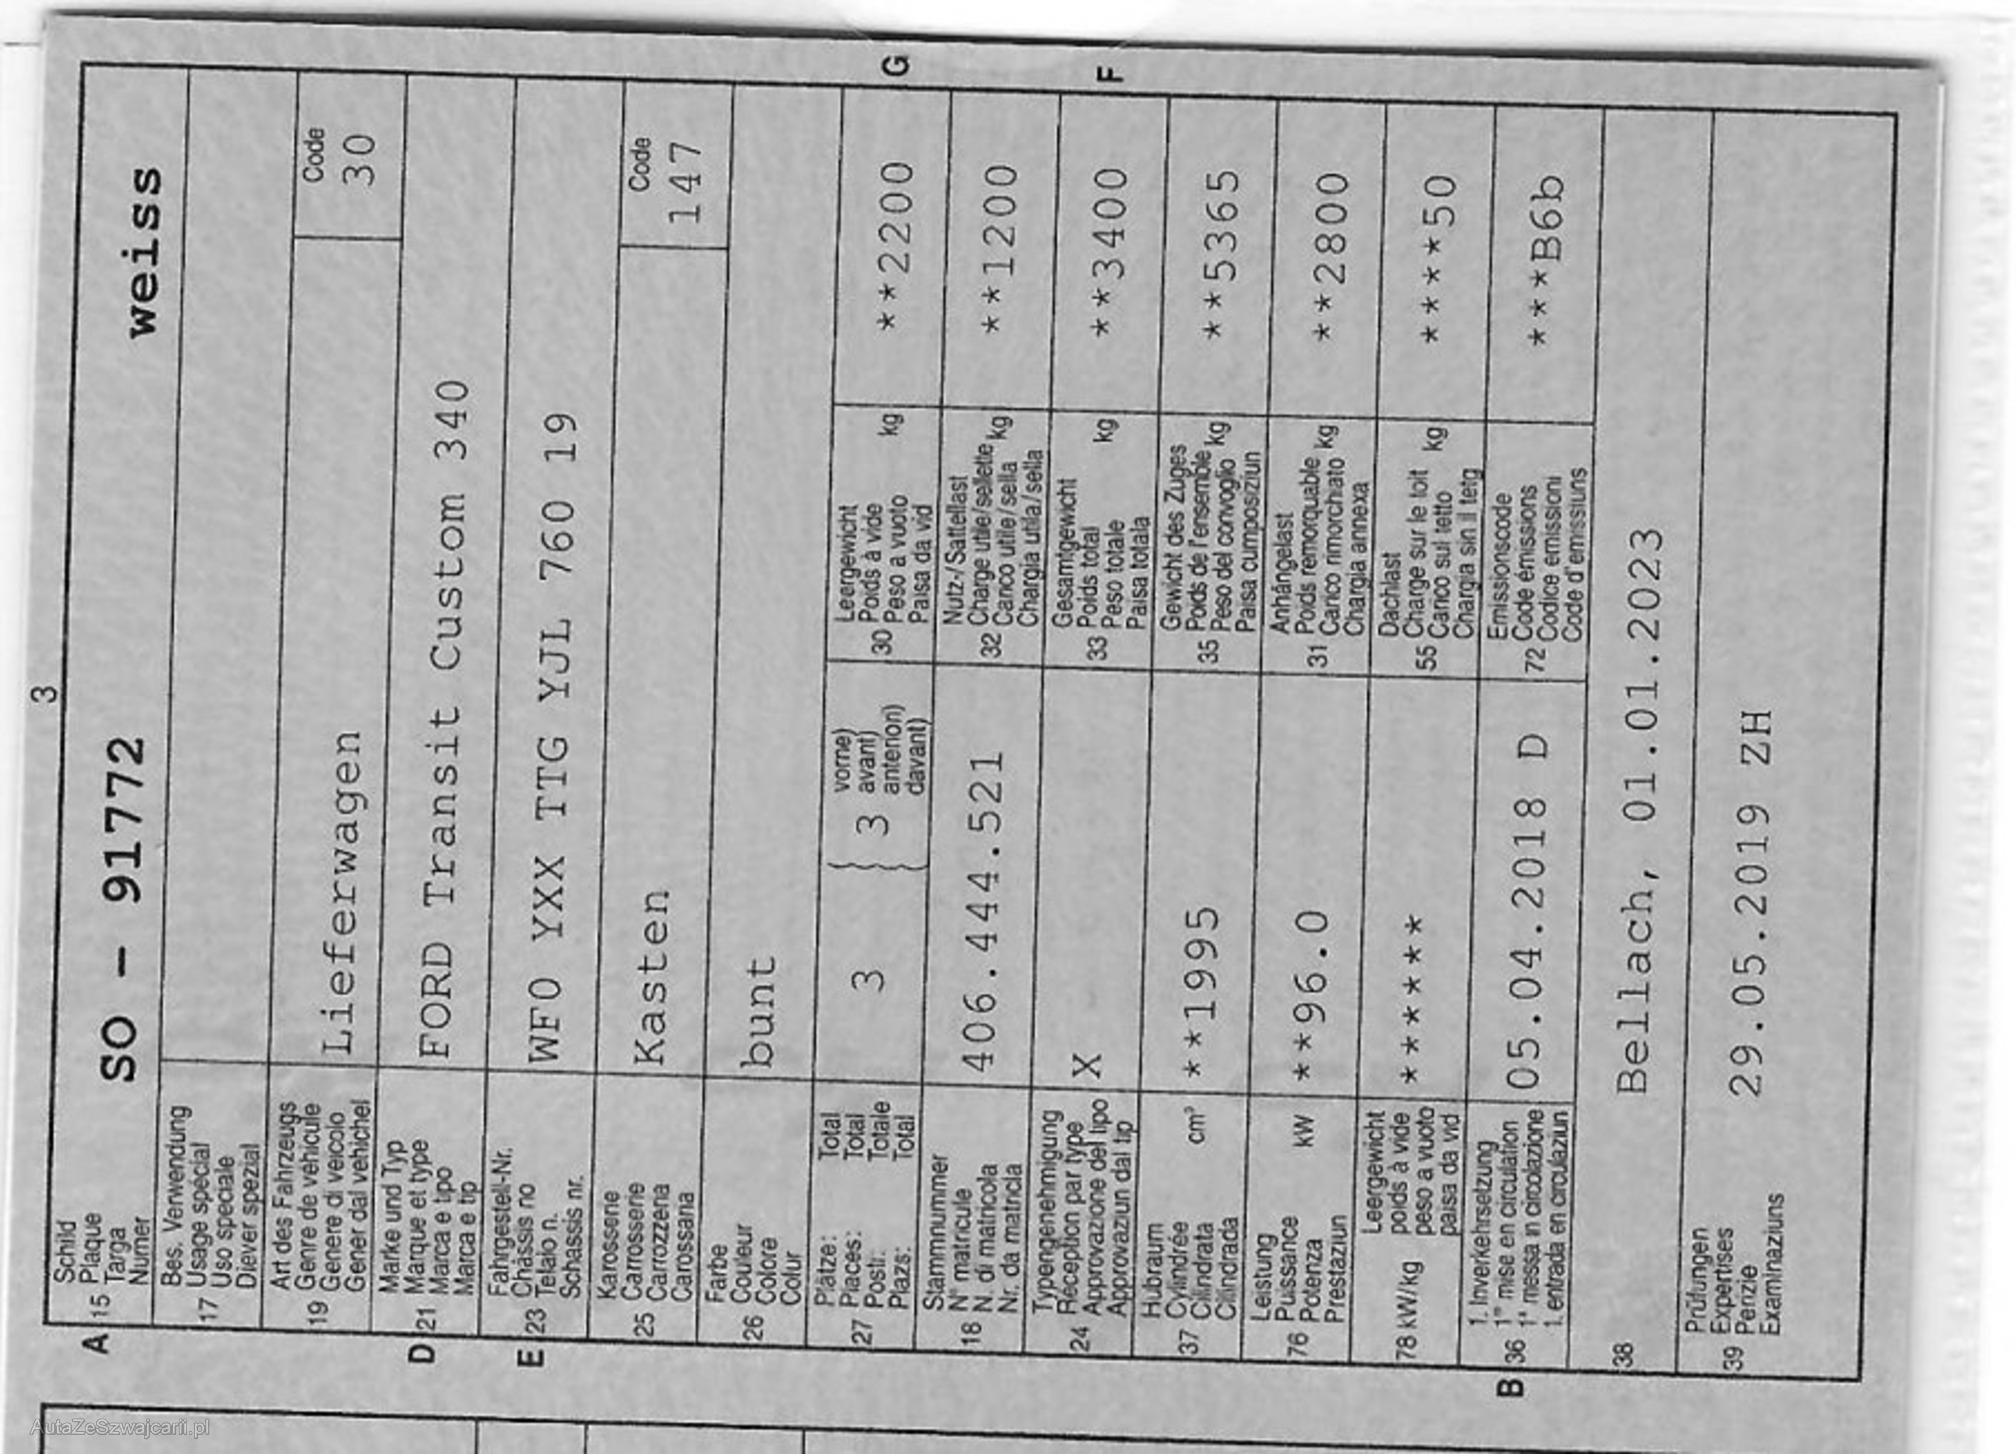 3
Schild
A 15 Plaque
Targa
Numer
SO - 91772 weiss
Bes. Verwendung
17 Usage spécial
Uso speciale
Diever spezial
Art des Fahrzeugs
19 Genre de véhicule
Genere di veicolo
Gener dal vehichel
Lieferwagen
Code
30
Marke und Typ
D 21 Marque et type
Marca e tipo
Marca e tip
FORD Transit Custom 340
Fahrgestell-Nr.
E 23 Châssis no
Telaio n.
Schassis nr.
WF0 YXX TTG YJL 760 19
Karosserie
25 Carrosserie
Carrozzeria
Carossaria
Kasten
Code
147
Farbe
26 Couleur
Colore
Colur
bunt
Plätze: Total
27 Places: Total
Posti: Totale
Plazs: Total
3
3
vorne)
avant)
anteriori)
davant)
Leergewicht
30 Poids à vide kg
Peso a vuoto
Paisa da vid
**2200
G
Stammnummer
18 N° matricule
N. di matricola
Nr. da matricla
406.444.521
Nutz-/Sattellast
32 Charge utile/sellette kg
Carico utile/sella
Chargia utila./sella
**1200
Typengenehmigung
24 Réception par type
Approvazione del tipo
Approvaziun dal tip
X
Gesamtgewicht
33 Poids total kg
Peso totale
Paisa totala
**3400
F
Hubraum
37 Cylindrée cm³
Cilindrata
Cilindrada
**1995
Gewicht des Zuges
35 Poids de l'ensemble kg
Peso del convoglio
Paisa cumposiziun
**5365
Leistung
76 Puissance kW
Potenza
Prestaziun
**96.0
Anhängelast
31 Poids remorquable kg
Carico rimorchiato
Chargia annexa
**2800
Leergewicht
78 kW/kg poids à vide
peso a vuoto
paisa da vid
******
Dachlast
55 Charge sur le toit kg
Carico sul tetto
Chargia sin il tetg
****50
1. Inverkehrsetzung
B 36 1re mise en circulation
1a messa in circolazione
1. entrada en circulaziun
05.04.2018 D
Emissionscode
72 Code émissions
Codice emissioni
Code d'emissiuns
***B6b
38
Bellach, 01.01.2023
Prüfungen
39 Expertises
Perizie
Examinaziuns
29.05.2019 ZH
AutaZeSzwajcarii.pl